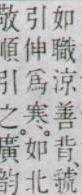 如職涼善背诸
引伸爲寒。如北
敬順引之。廣韵